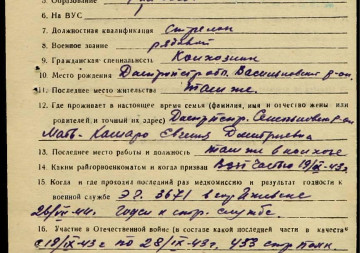 5. Образование
6. На ВУС
7. Должностная квалификация стрелок
8. Военное звание рядовой
9. Гражданская специальность Колхозник
10. Место рождения Днепропетр. обл.
11. Последнее место жительства там же.
12. Где проживает в настоящее время семья (фамилия, имя и отчество жены или
родителей и точный их адрес) Днепропетр.
Мать Евгения Дмитриевна
13. Последнее место работы и должность там же в колхозе
14. Каким райгорвоенкоматом и когда призван 19/IX-43г
15. Когда и где проходил последний раз медкомиссию и результат годности к
военной службе ЭГ. 3671
26/IV-44. Годен к стр. службе.
16. Участие в Отечественной войне (в составе какой последней части и в качест
с 19/IX-43г по 28/IX-43г. 453 стр полк